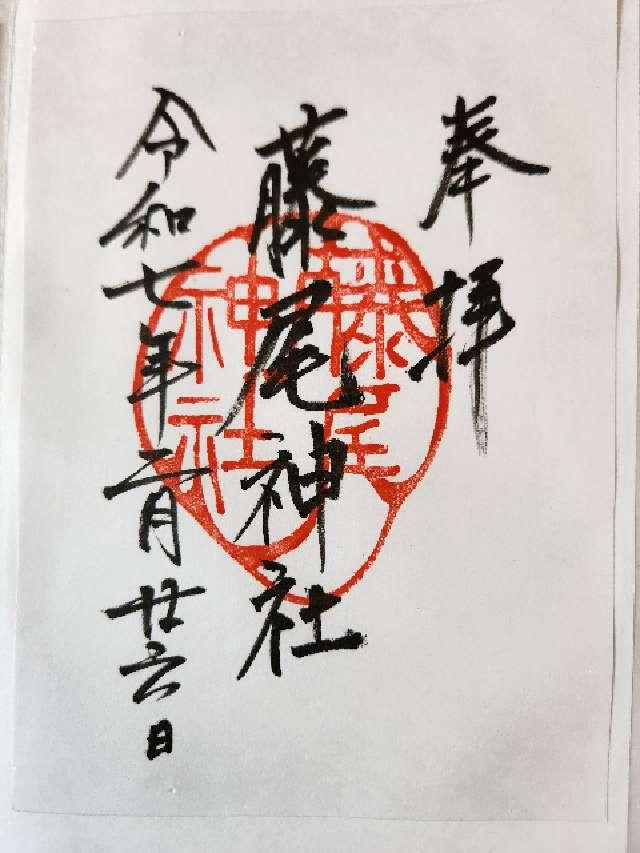 奉拝
藤尾神社
藤尾
神社
令和七年二月廿六日